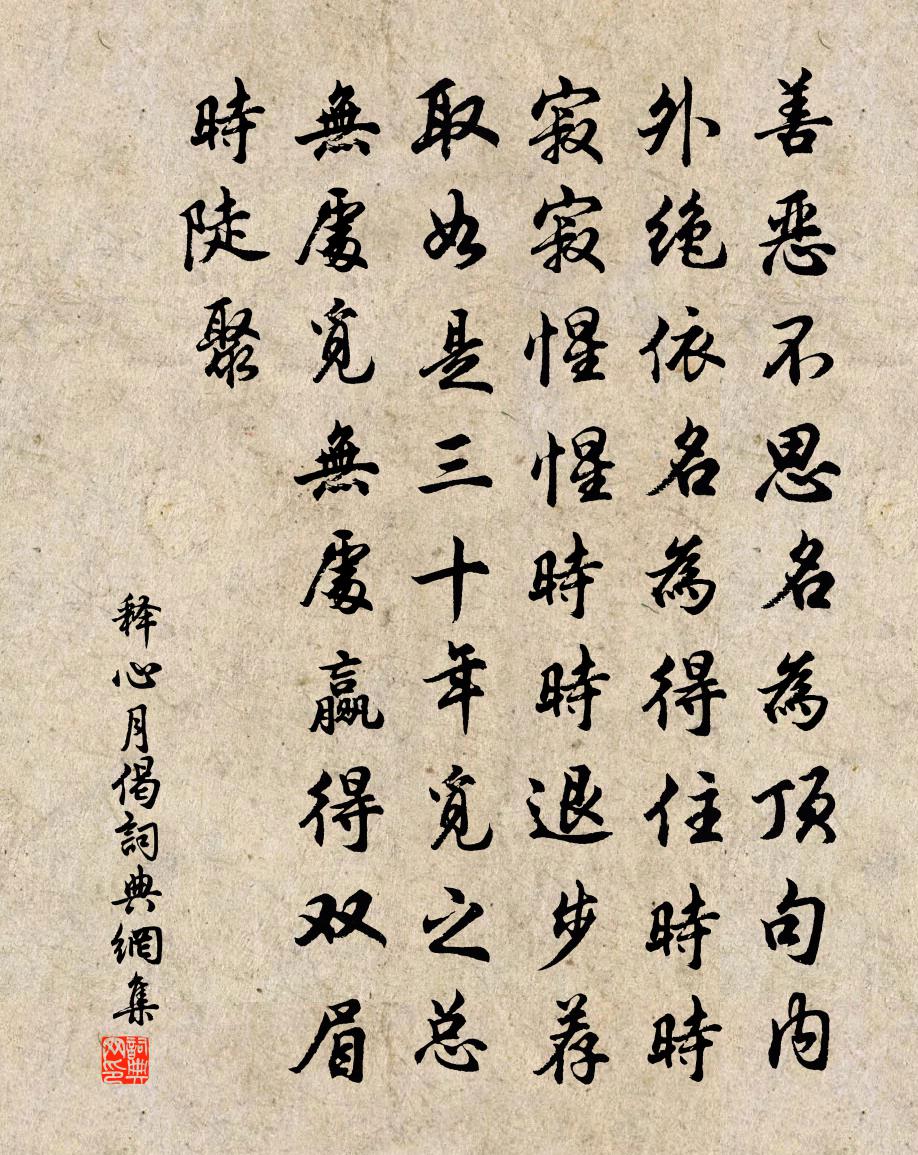 善惡不思名為頂句内
外绝依名為得住時時
寂寂惺惺時時退步荐
取如是三十年覓之总
無處覓無處贏得双眉
時陡聚
释心月偈詞典網集
詞典网印